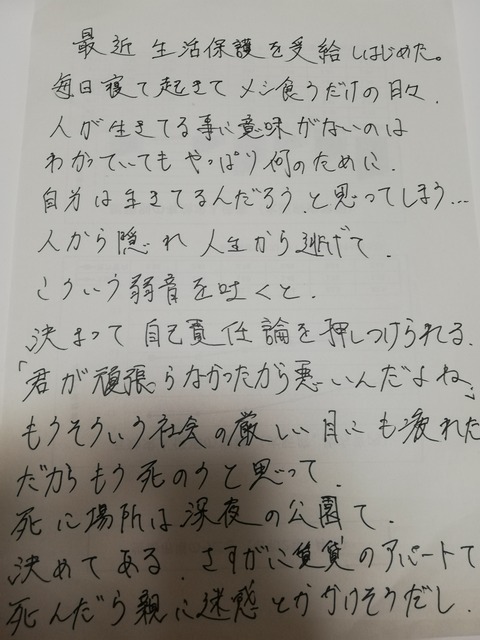 最近 生活保護を受給しはじめた。
毎日寝て起きてメシ食うだけの日々.
人が生きてる事に意味がないのは
わかっていてもやっぱり何のために.
自分は生きてるんだろう.と思ってしまう…
人から隠れ 人生から逃げて.
こういう弱音を吐くと.
決まって自己責任論を押しつけられる.
「君が頑張らなかったから悪いんだよね」
もうそういう社会の厳しい目にも疲れた
だからもう死のうと思って.
死に場所は深夜の公園で.
決めてある.さすがに賃貸のアパートで
死んだら親に迷惑とかかけそうだし.